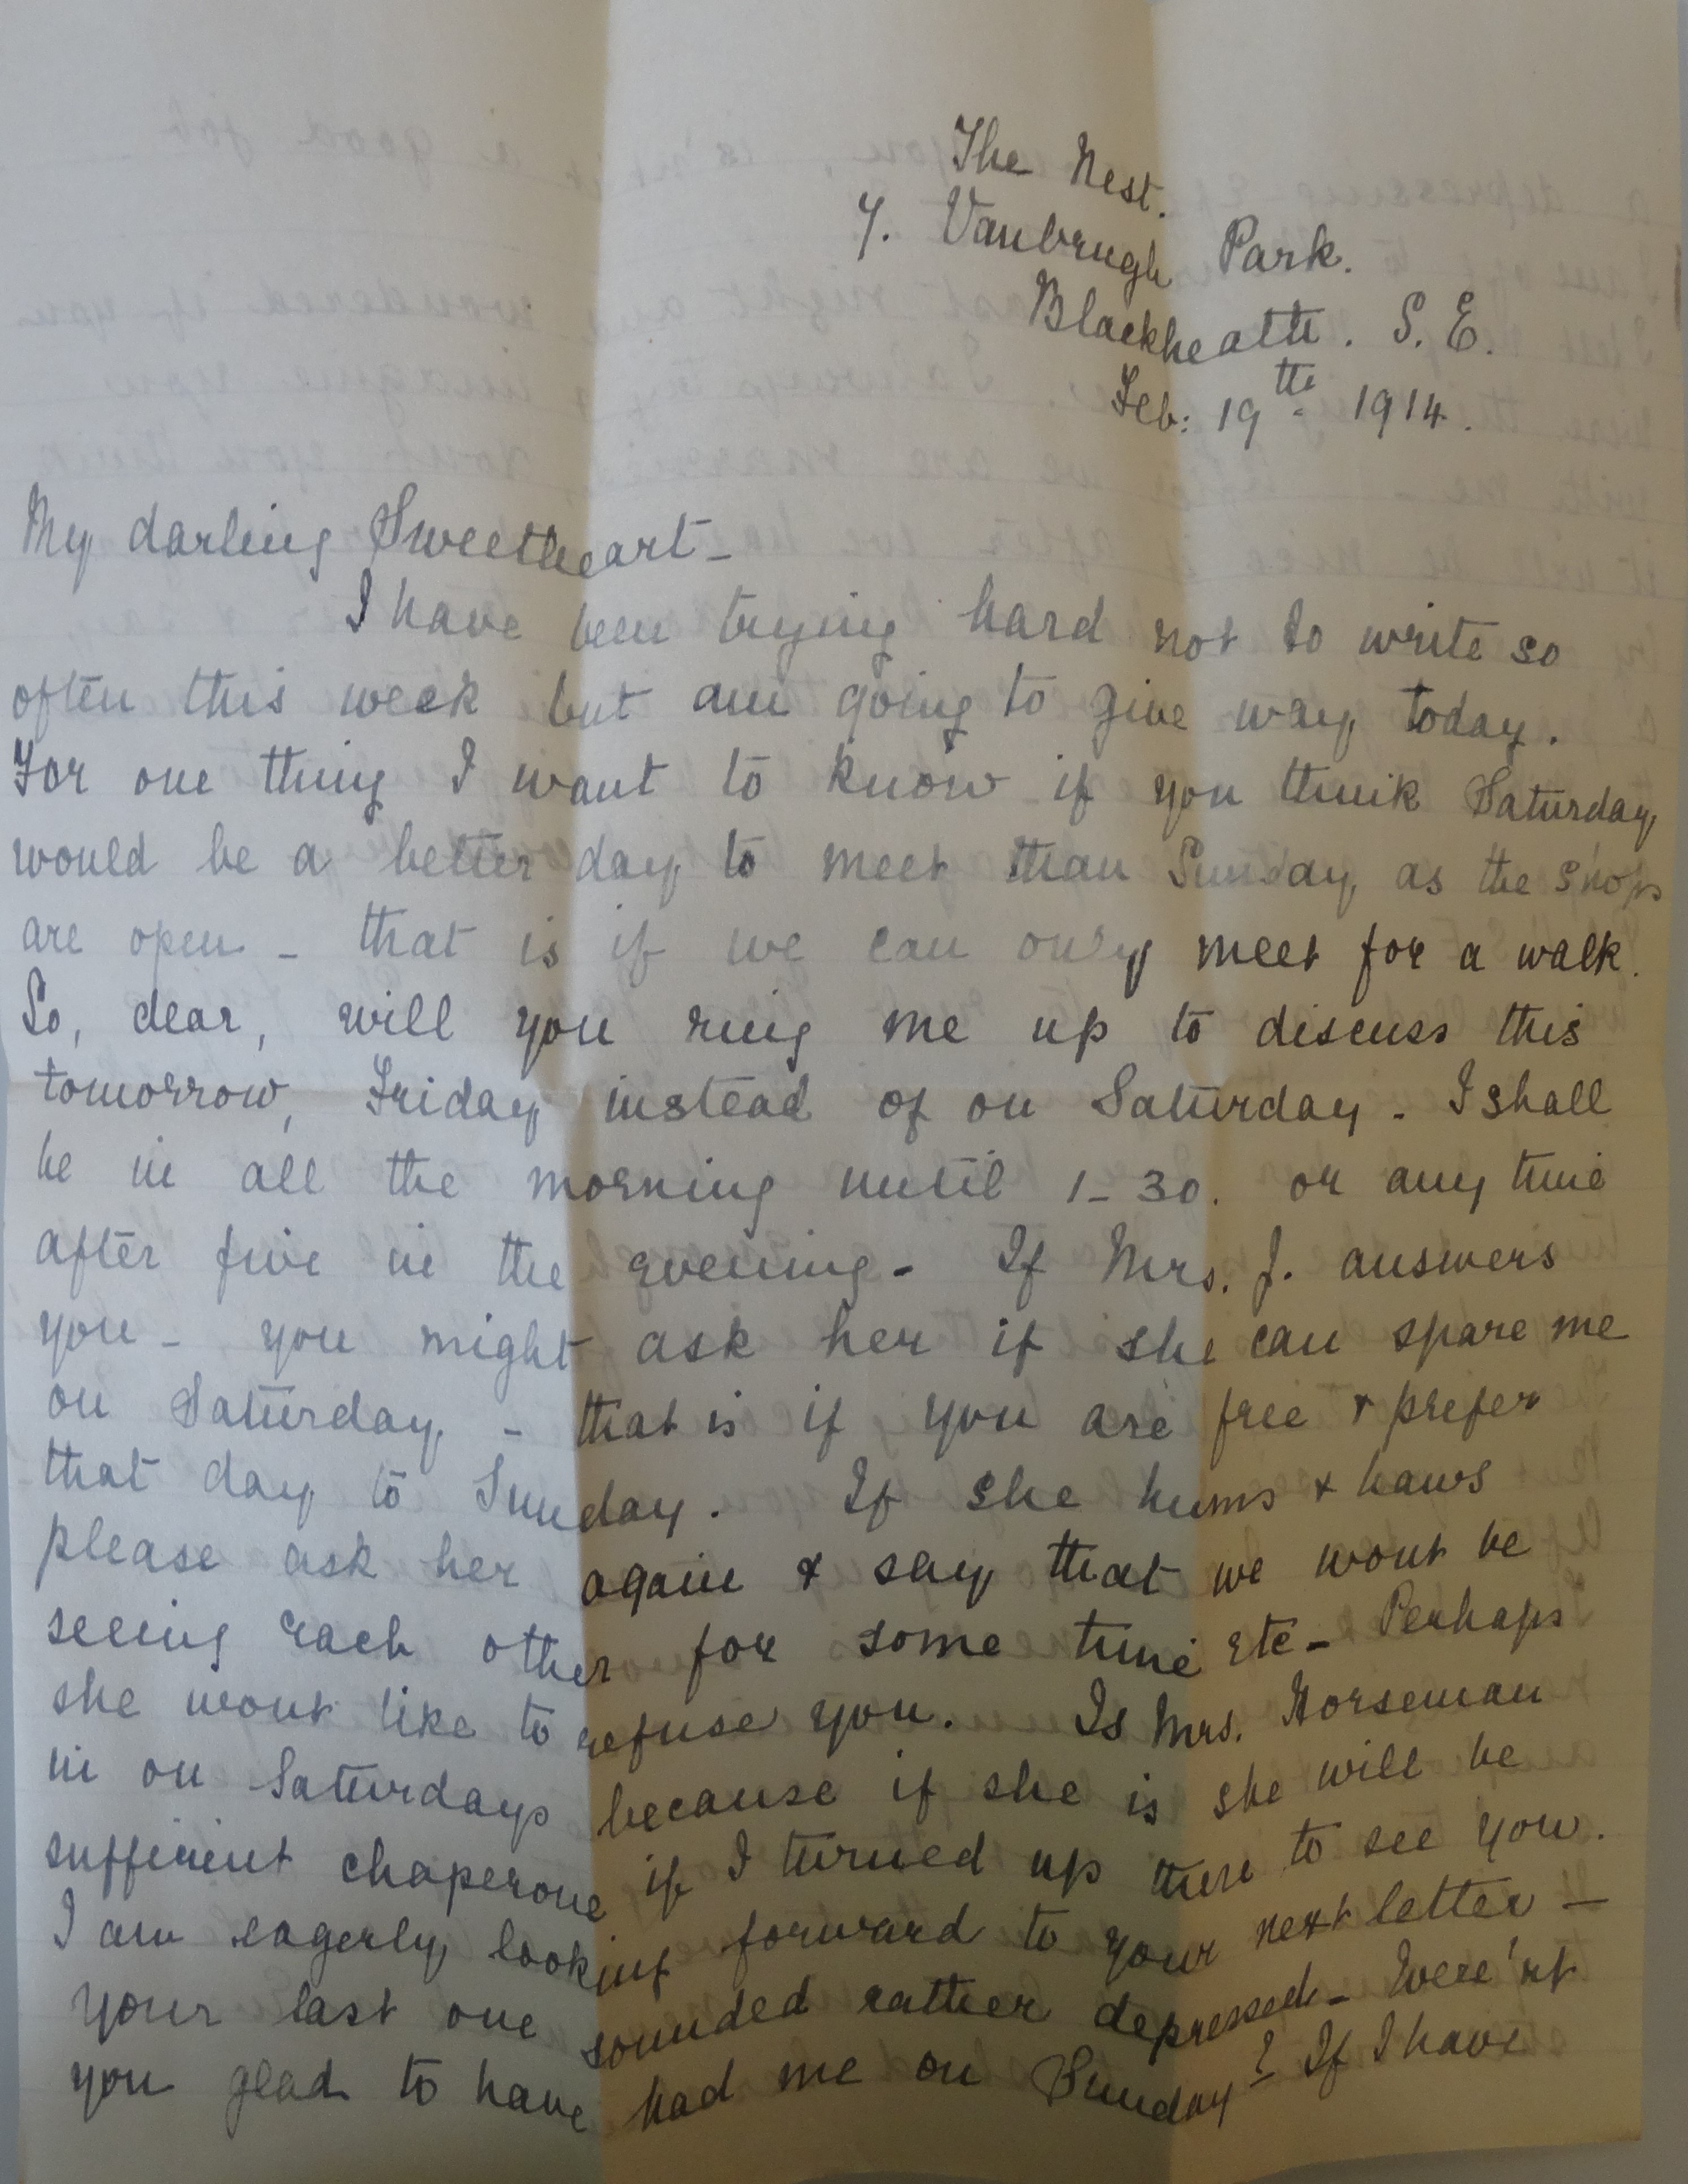 The Nest.
7. Vanbrugh Park.
Blackheath. S. E.
Feb: 19th. 1914.
My darling Sweetheart -
I have been trying hard not to write so
often this week but am going to give way today.
For one thing I want to know if you think Saturday
would be a better day to meet than Sunday as the shops
are open - that is if we can only meet for a walk.
So, dear, will you ring me up to discuss this
tomorrow, Friday instead of on Saturday - I shall
be in all the morning until 1-30. or any time
after five in the evening - If Mrs. J. answers
you - you might ask her if she can spare me
on Saturday - that is if you are free & prefer
that day to Sunday. If she hums & haws
please ask her again & say that we wont be
seeing each other for some time etc - Perhaps
she wont like to refuse you. Is Mrs. Horseman
in on Saturdays because if she is she will be
sufficient chaperone if I turned up there to see you.
I am eagerly looking forward to your next letter -
your last one sounded rather depressed - Were'nt
you glad to have had me on Sunday? If I have